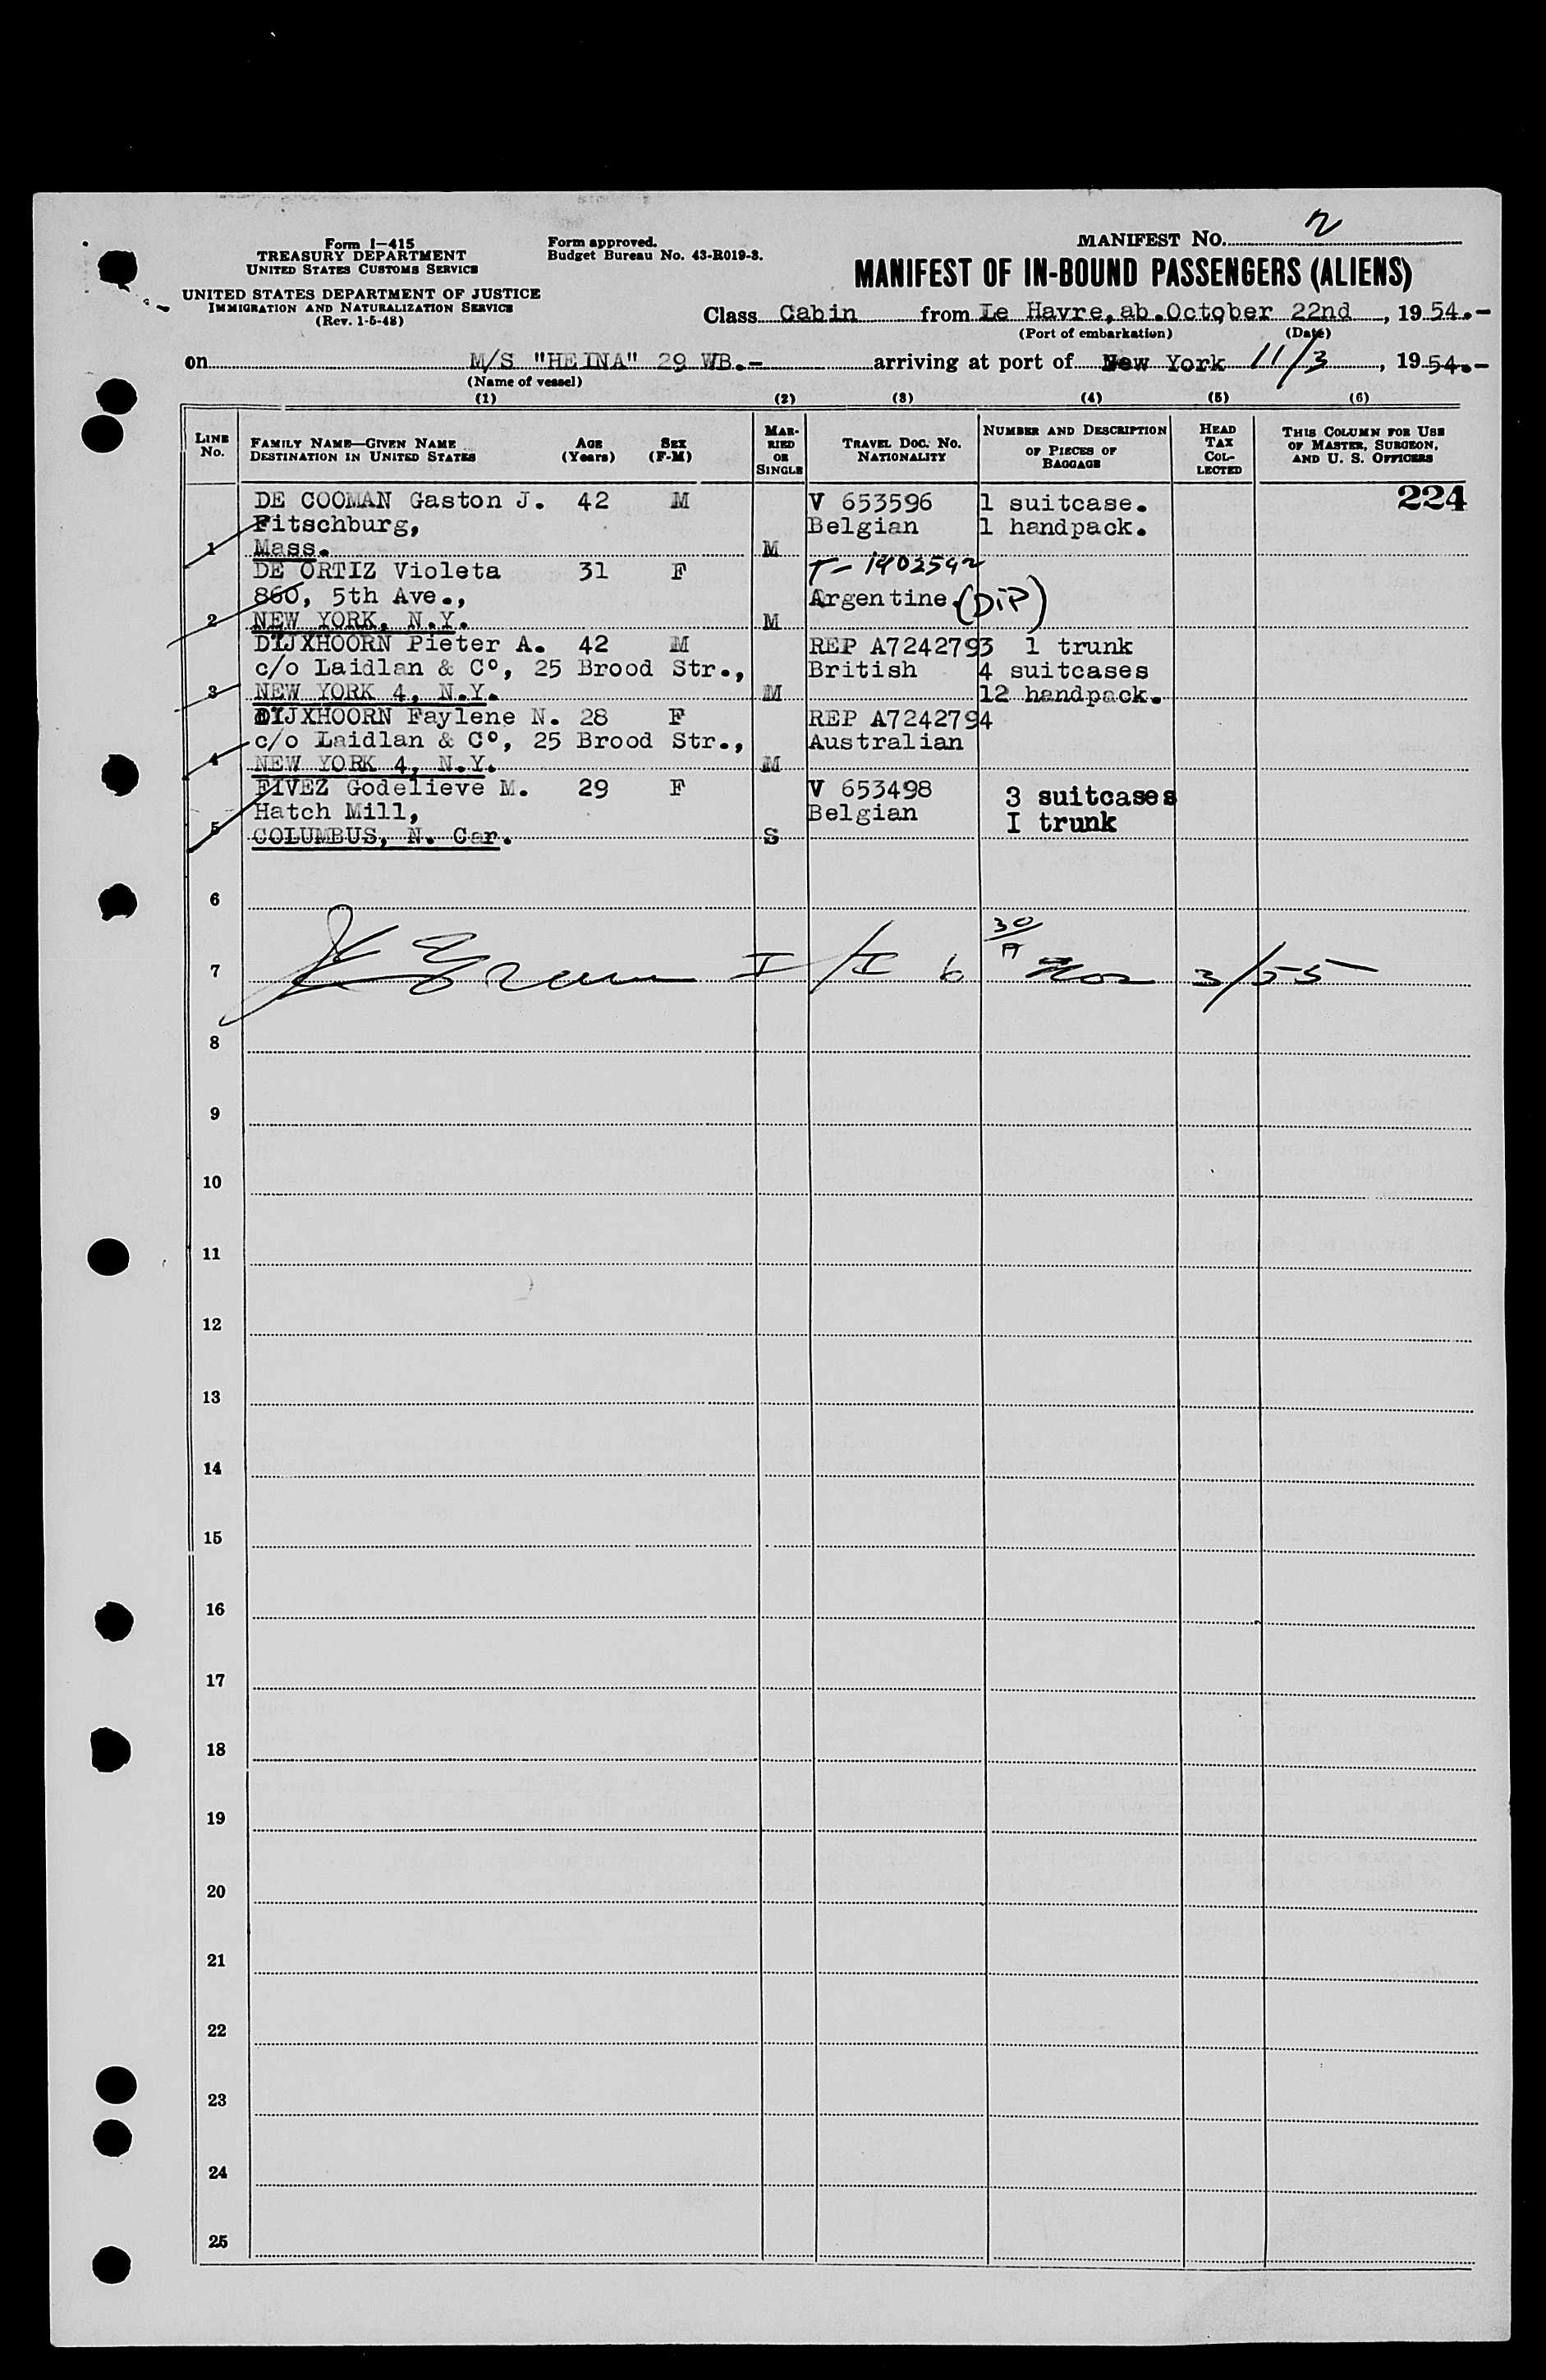 Form I-415
TREASURY DEPARTMENT
UNITED STATES CUSTOMS SERVICE
UNITED STATES DEPARTMENT OF JUSTICE
IMMIGRATION AND NATURALIZATION SERVICE
(Rev. 1-5-48)
Form approved.
Budget Bureau No. 43-R019-3.
MANIFEST NO. 2
MANIFEST OF IN-BOUND PASSENGERS (ALIENS)
Class Cabin from Le Havre, ab. October 22nd, 1954.-
(Port of embarkation) (Date)
on M/S "HEINA" 29 WB.- arriving at port of New York 11/3, 1954.-
(Name of vessel)
(1) (2) (3) (4) (5) (6)
LINE No. FAMILY NAME—GIVEN NAME DESTINATION IN UNITED STATES AGE (Years) SEX (F-M) MARRIED OR SINGLE TRAVEL DOC. NO. NATIONALITY NUMBER AND DESCRIPTION OF PIECES OF BAGGAGE HEAD TAX COLLECTED THIS COLUMN FOR USE OF MASTER, SURGEON, AND U. S. OFFICERS
DE COOMAN Gaston J. 42 M V 653596 1 suitcase. 224
Fitschburg, Belgian 1 handpack.
1 Mass. M
DE ORTIZ Violeta 31 F T-1402592
860, 5th Ave., Argentine (DIP)
2 NEW YORK, N.Y. M
DIJXHOORN Pieter A. 42 M REP A7242793 1 trunk
c/o Laidlan & C°, 25 Brood Str., British 4 suitcases
3 NEW YORK 4, N.Y. M 12 handpack.
DIJXHOORN Faylene N. 28 F REP A7242794
c/o Laidlan & C°, 25 Brood Str., Australian
4 NEW YORK 4, N.Y. M
FIVEZ Godelieve M. 29 F V 653498 3 suitcases
Hatch Mill, Belgian I trunk
5 COLUMBUS, N. Car. S
6
30/A
7 I/I 6 3/55
8
9
10
11
12
13
14
15
16
17
18
19
20
21
22
23
24
25